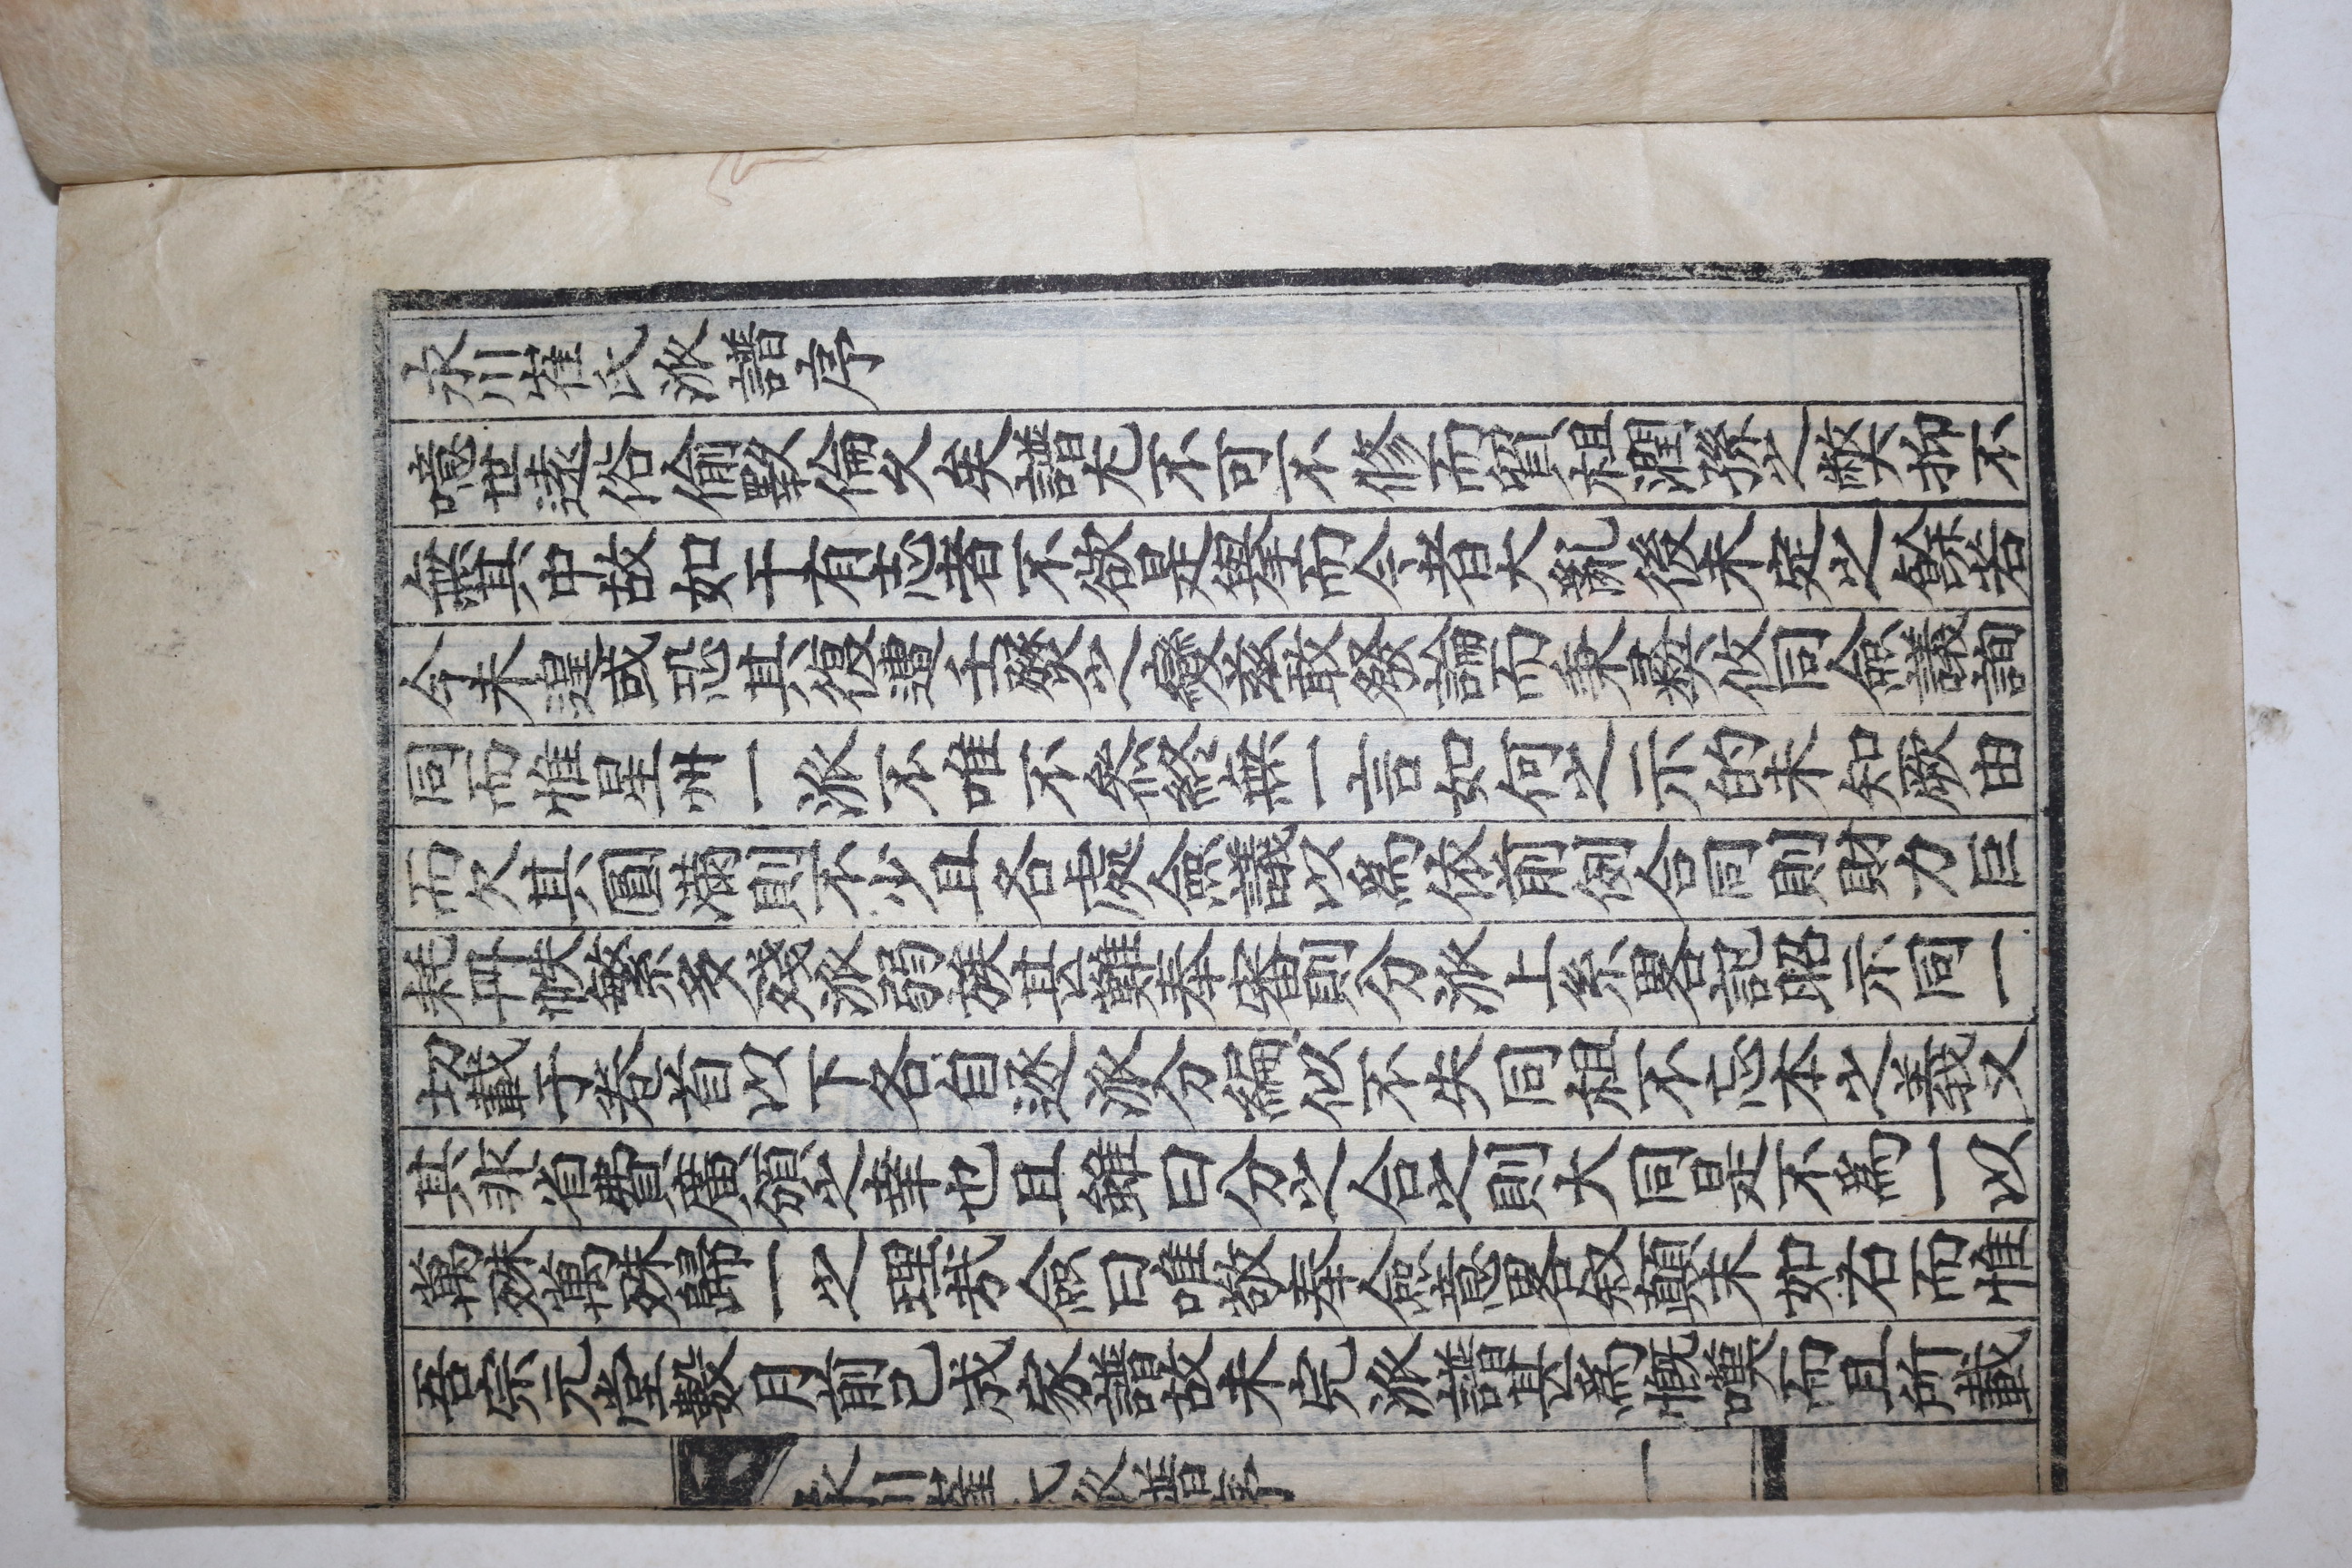 永川崔氏派譜序
噫世遠俗偷斁倫久矣譜尤不可不修而貿祖潤孫之弊抑不
無其中故如干有志者不欲是擧而今者大亂後未定之餘若
今未遑或恐其復遭壬燹之變玆敢發論而秉彛攸同僉議詢
同而惟星州一派不唯不叅終無一言如何之示的未知厥由
而欠其圓滿則不少且各處僉議以爲依前例合同則財力巨
耗冊帙繁多殘派弱族甚難奉審則分派上系畧記昭示同一
切載于卷首以下各自逐派分編似不失同祖不忘本之義又
其非省費廣頒之幸也且雖曰分之合之則大同是不爲一以
萬殊萬殊歸一之理㦲僉曰唯敬奉僉意畧叙顛末如右而惟
吾宗元堂數月前已成家譜故未完派譜甚爲慨嘆而且所載
永川崔氏派譜序 一